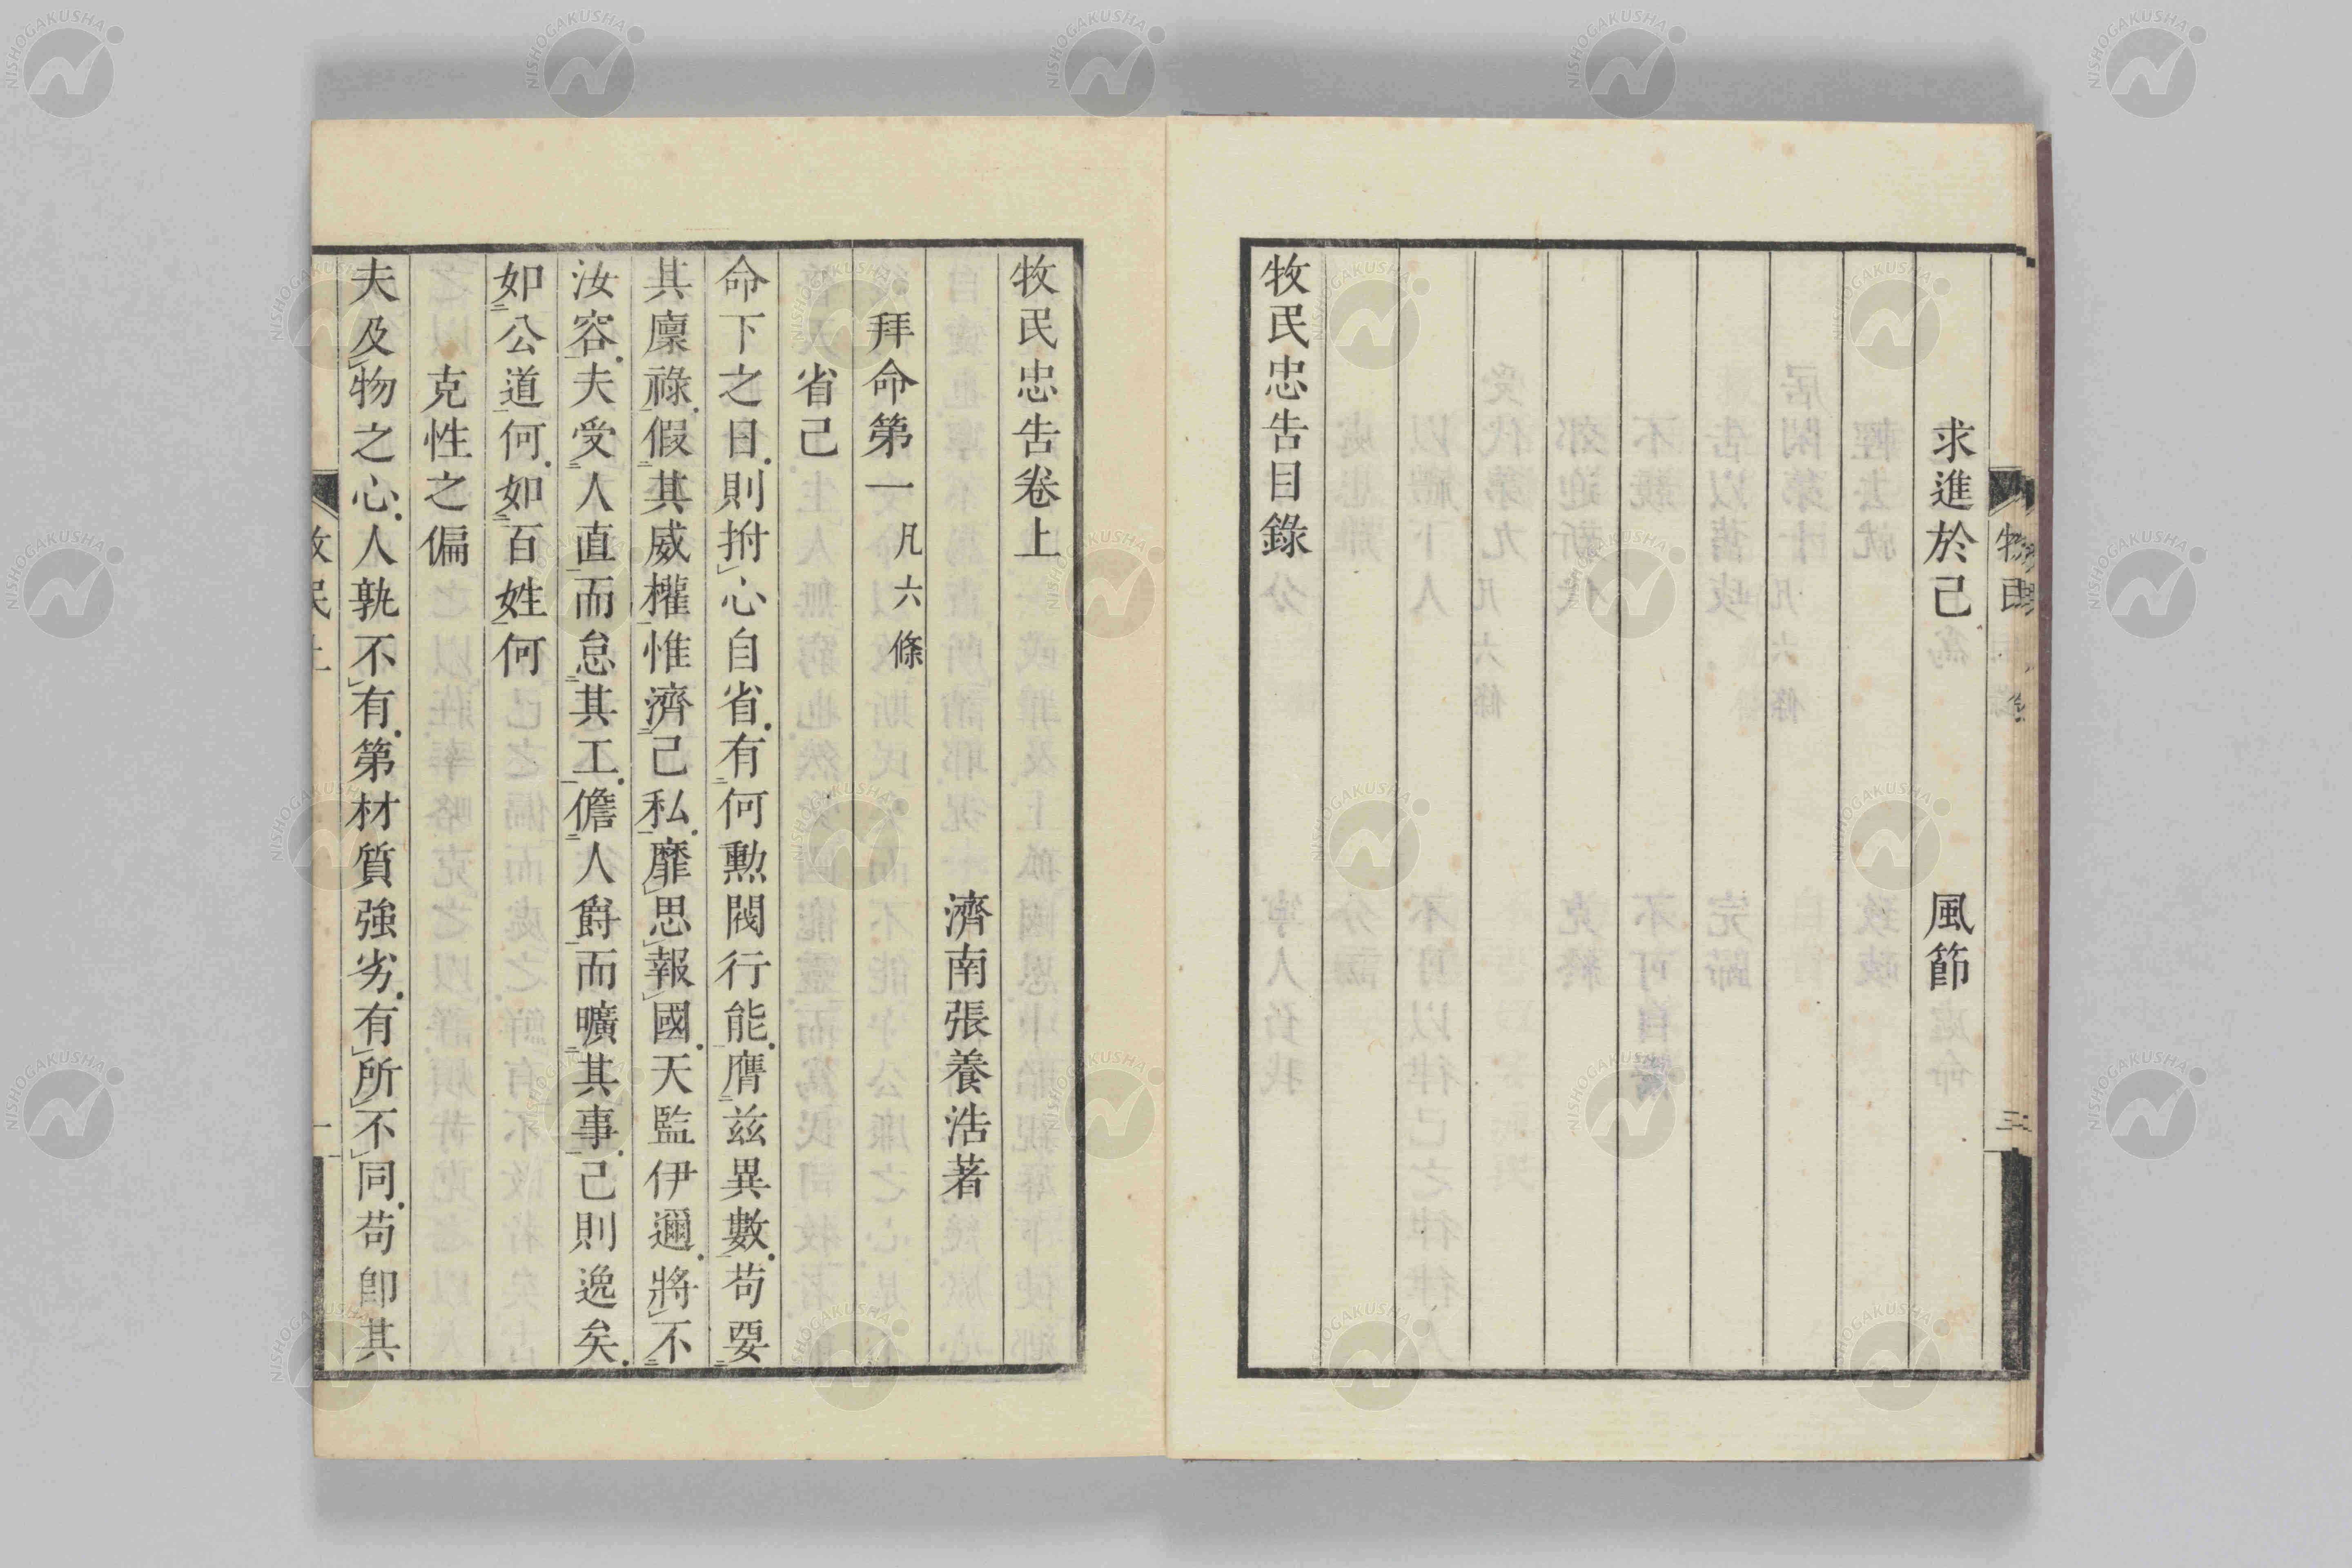 求進於己　風節
牧民忠告目錄
牧民忠告卷上
濟南張養浩著
拜命第一　凡六條
省己
命下之日則拊心自省有何勲閥行能膺兹異數苟要
其廩祿假其威權惟濟己私靡思報國天監伊邇將不
汝容夫受人直而怠其工儋人爵而曠其事己則逸矣
如公道何如百姓何
克性之偏
夫及物之心人孰不有第材質強劣有所不同苟卽其
NISHOGAKUSHA